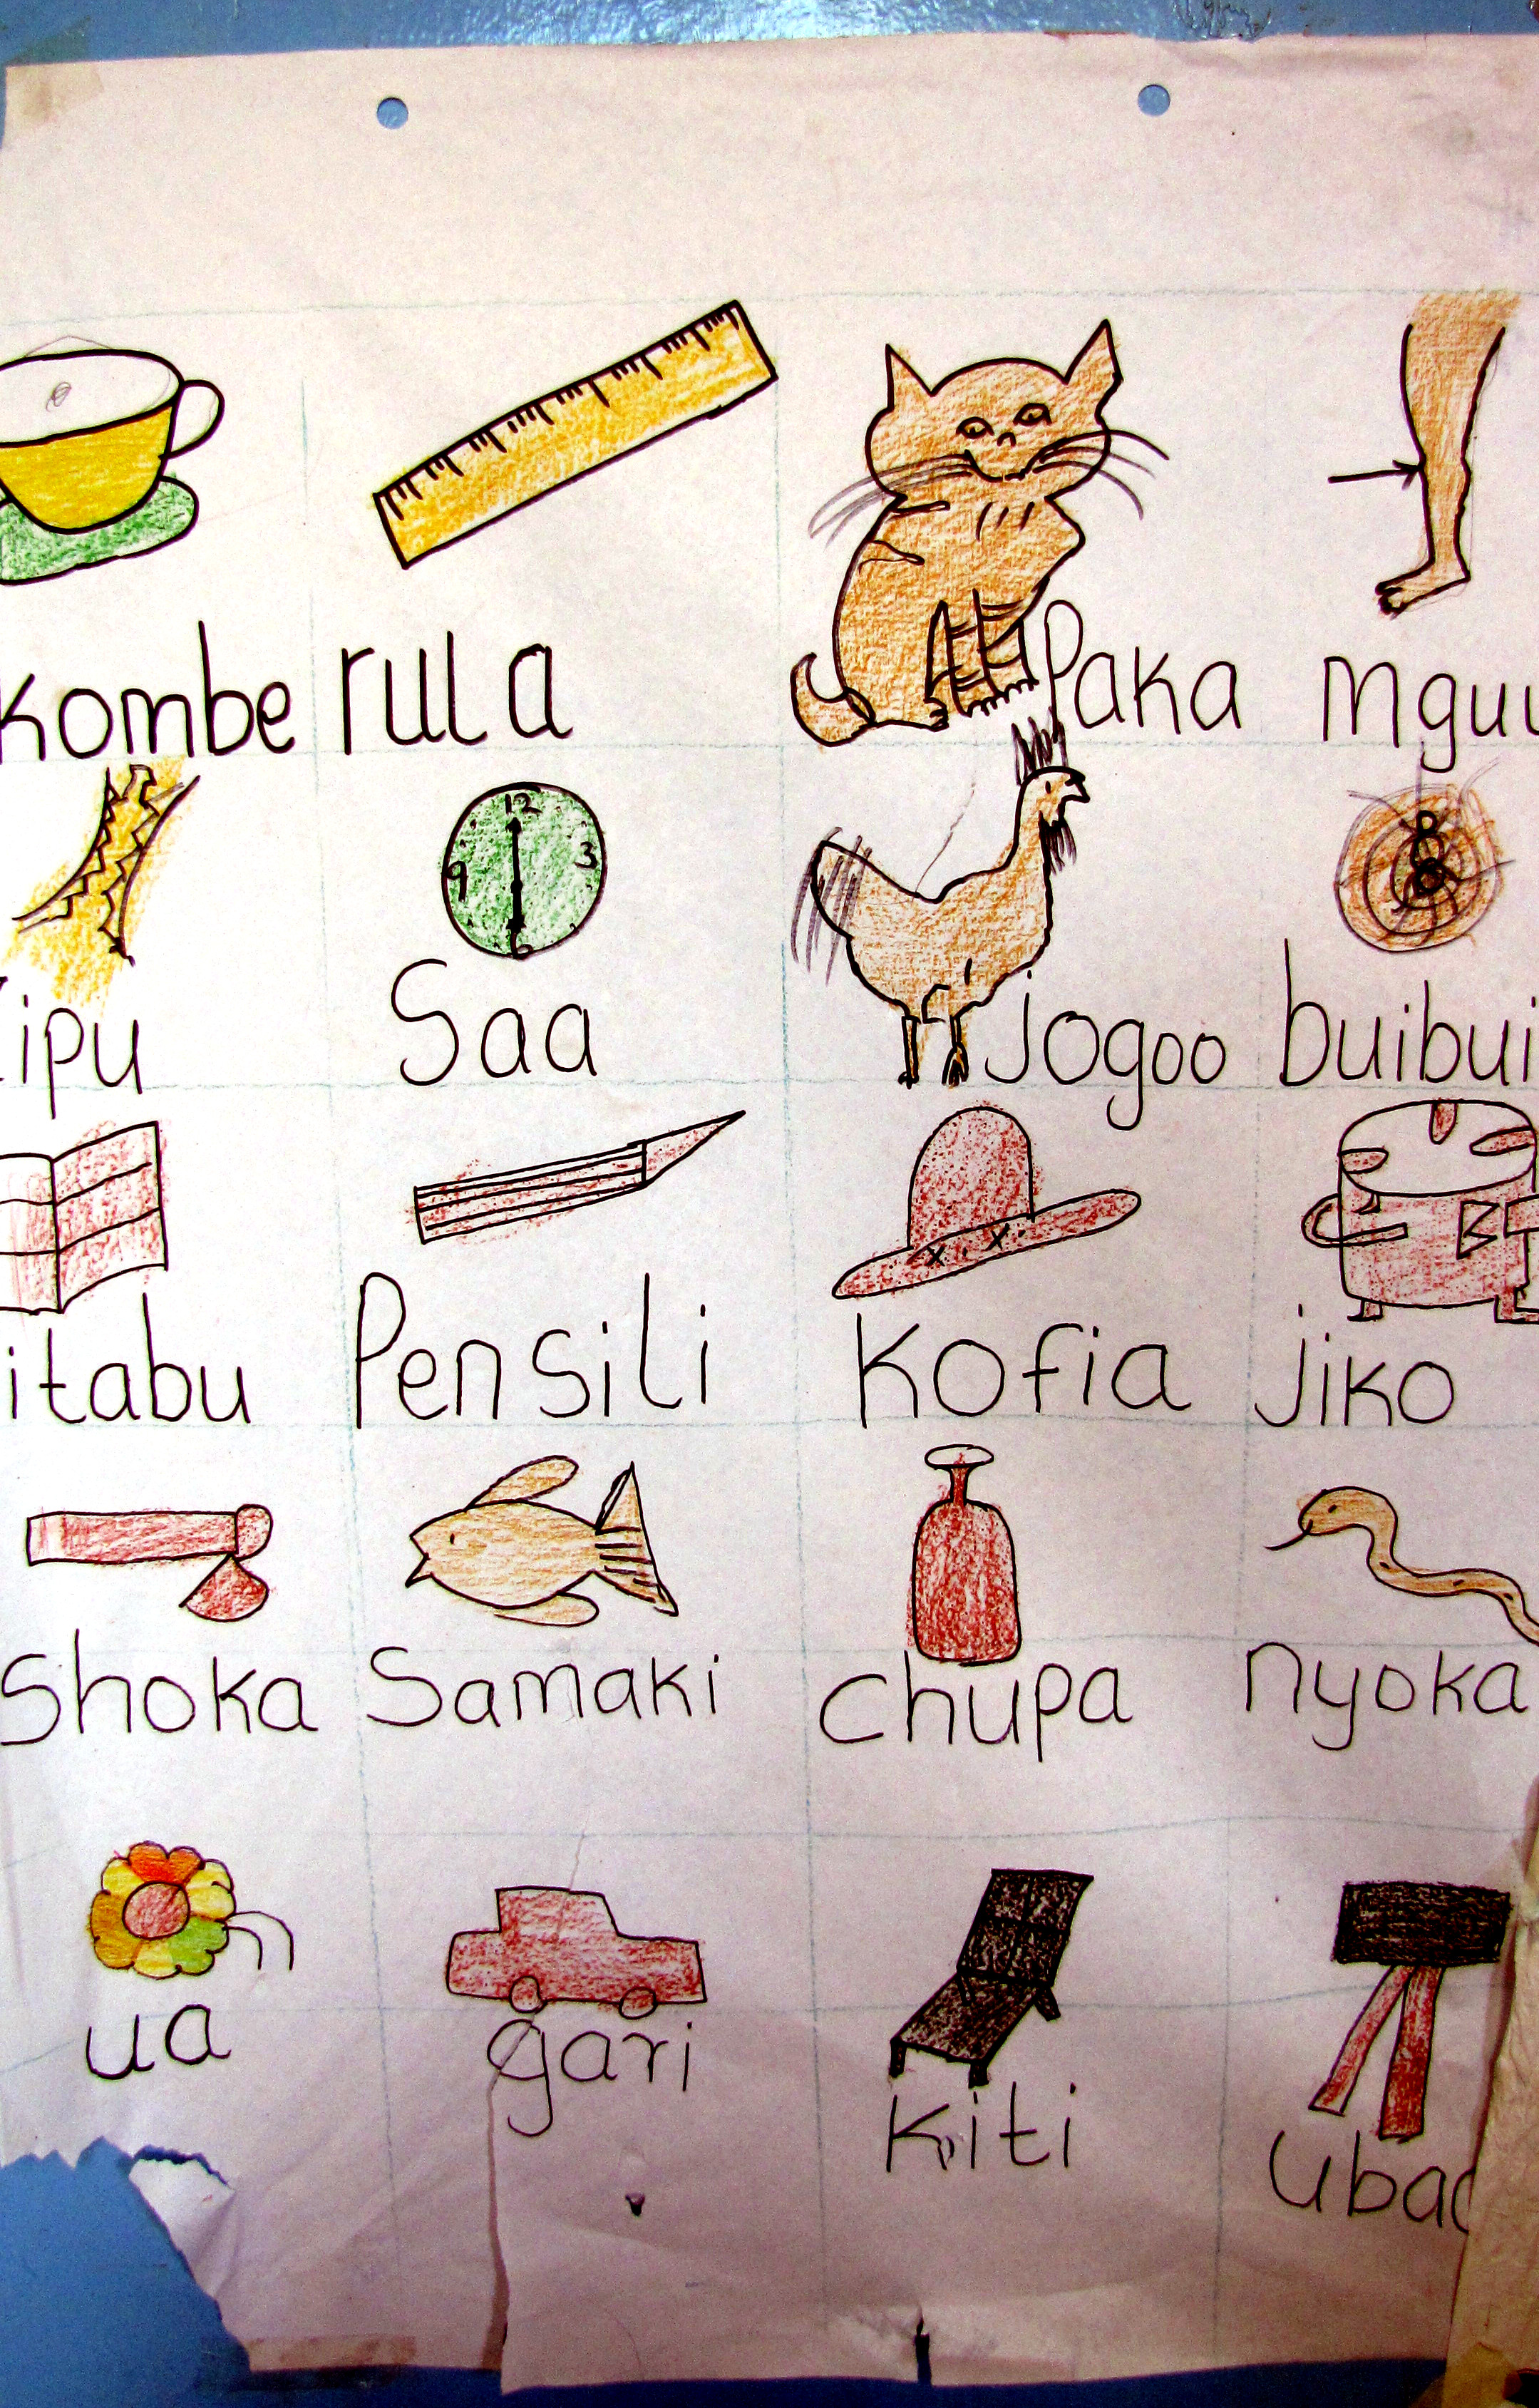 kombe rula Paka mguu
12
9 3
6
Zipu Saa jogoo buibui
itabu Pensili Kofia jiko
Shoka Samaki chupa nyoka
ua gari Kiti ubao